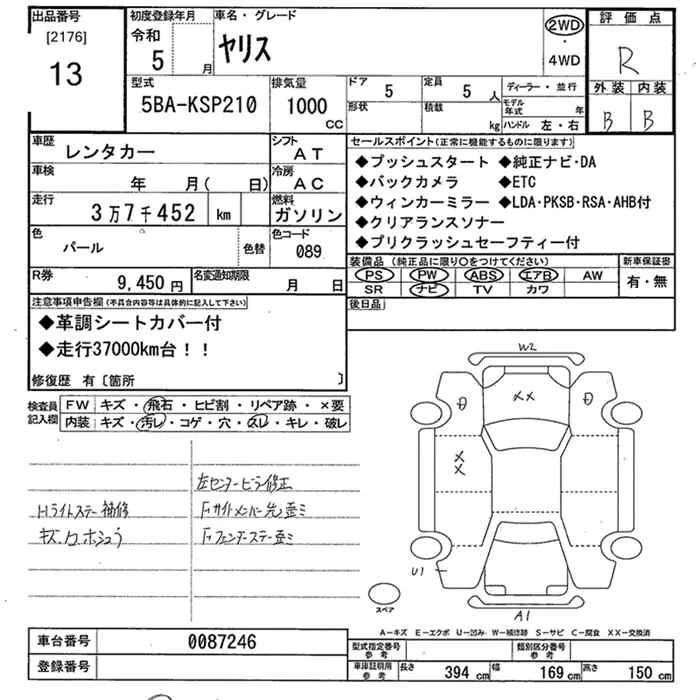 出品番号
[2176]
13
初度登録年月
令和
5
月
車名・グレード
ヤリス
2WD
・
4WD
評価点
R
外装 内装
B B
型式
5BA-KSP210
排気量
1000
CC
ドア
5
定員
5 人
形状
積載
kg
ディーラー・並行
モデル年式 年
ハンドル 左・右
車歴
レンタカー
シフト
AT
車検
年 月( 日)
冷房
AC
走行
3万7千452 km
燃料
ガソリン
色
パール
色替
色コード
089
R券
9,450 円
名変通知期限
月 日
セールスポイント(正常に機能するものに限ります)
◆プッシュスタート ◆純正ナビ・DA
◆バックカメラ ◆ETC
◆ウィンカーミラー ◆LDA・PKSB・RSA・AHB付
◆クリアランスソナー
◆プリクラッシュセーフティー付
装備品(純正品に限り〇をつけてください)
PS PW ABS エアB AW
SR ナビ TV カワ
新車保証書
有・無
後日品
注意事項申告欄(不具合内容等は具体的に記入して下さい)
◆革調シートカバー付
◆走行37000km台!!
修復歴 有〔箇所 〕
検査員記入欄
FW キズ・飛石・ヒビ割・リペア跡・×要
内装 キズ・汚レ・コゲ・穴・スレ・キレ・破レ
左センターピラー修正
Hライトステー補修
Fサイドメンバー先歪ミ
キズ、凹ホシュウ
Fフェンダーステー歪ミ
W2
XX
XX
U1
A1
スペア
A-キズ E-エクボ U-凹み W-補修跡 S-サビ C-腐食 XX-交換済
車台番号
0087246
登録番号
型式指定番号
参考
類別区分番号
参考
車庫証明用
参考
長さ 394 cm 幅 169 cm 高さ 150 cm